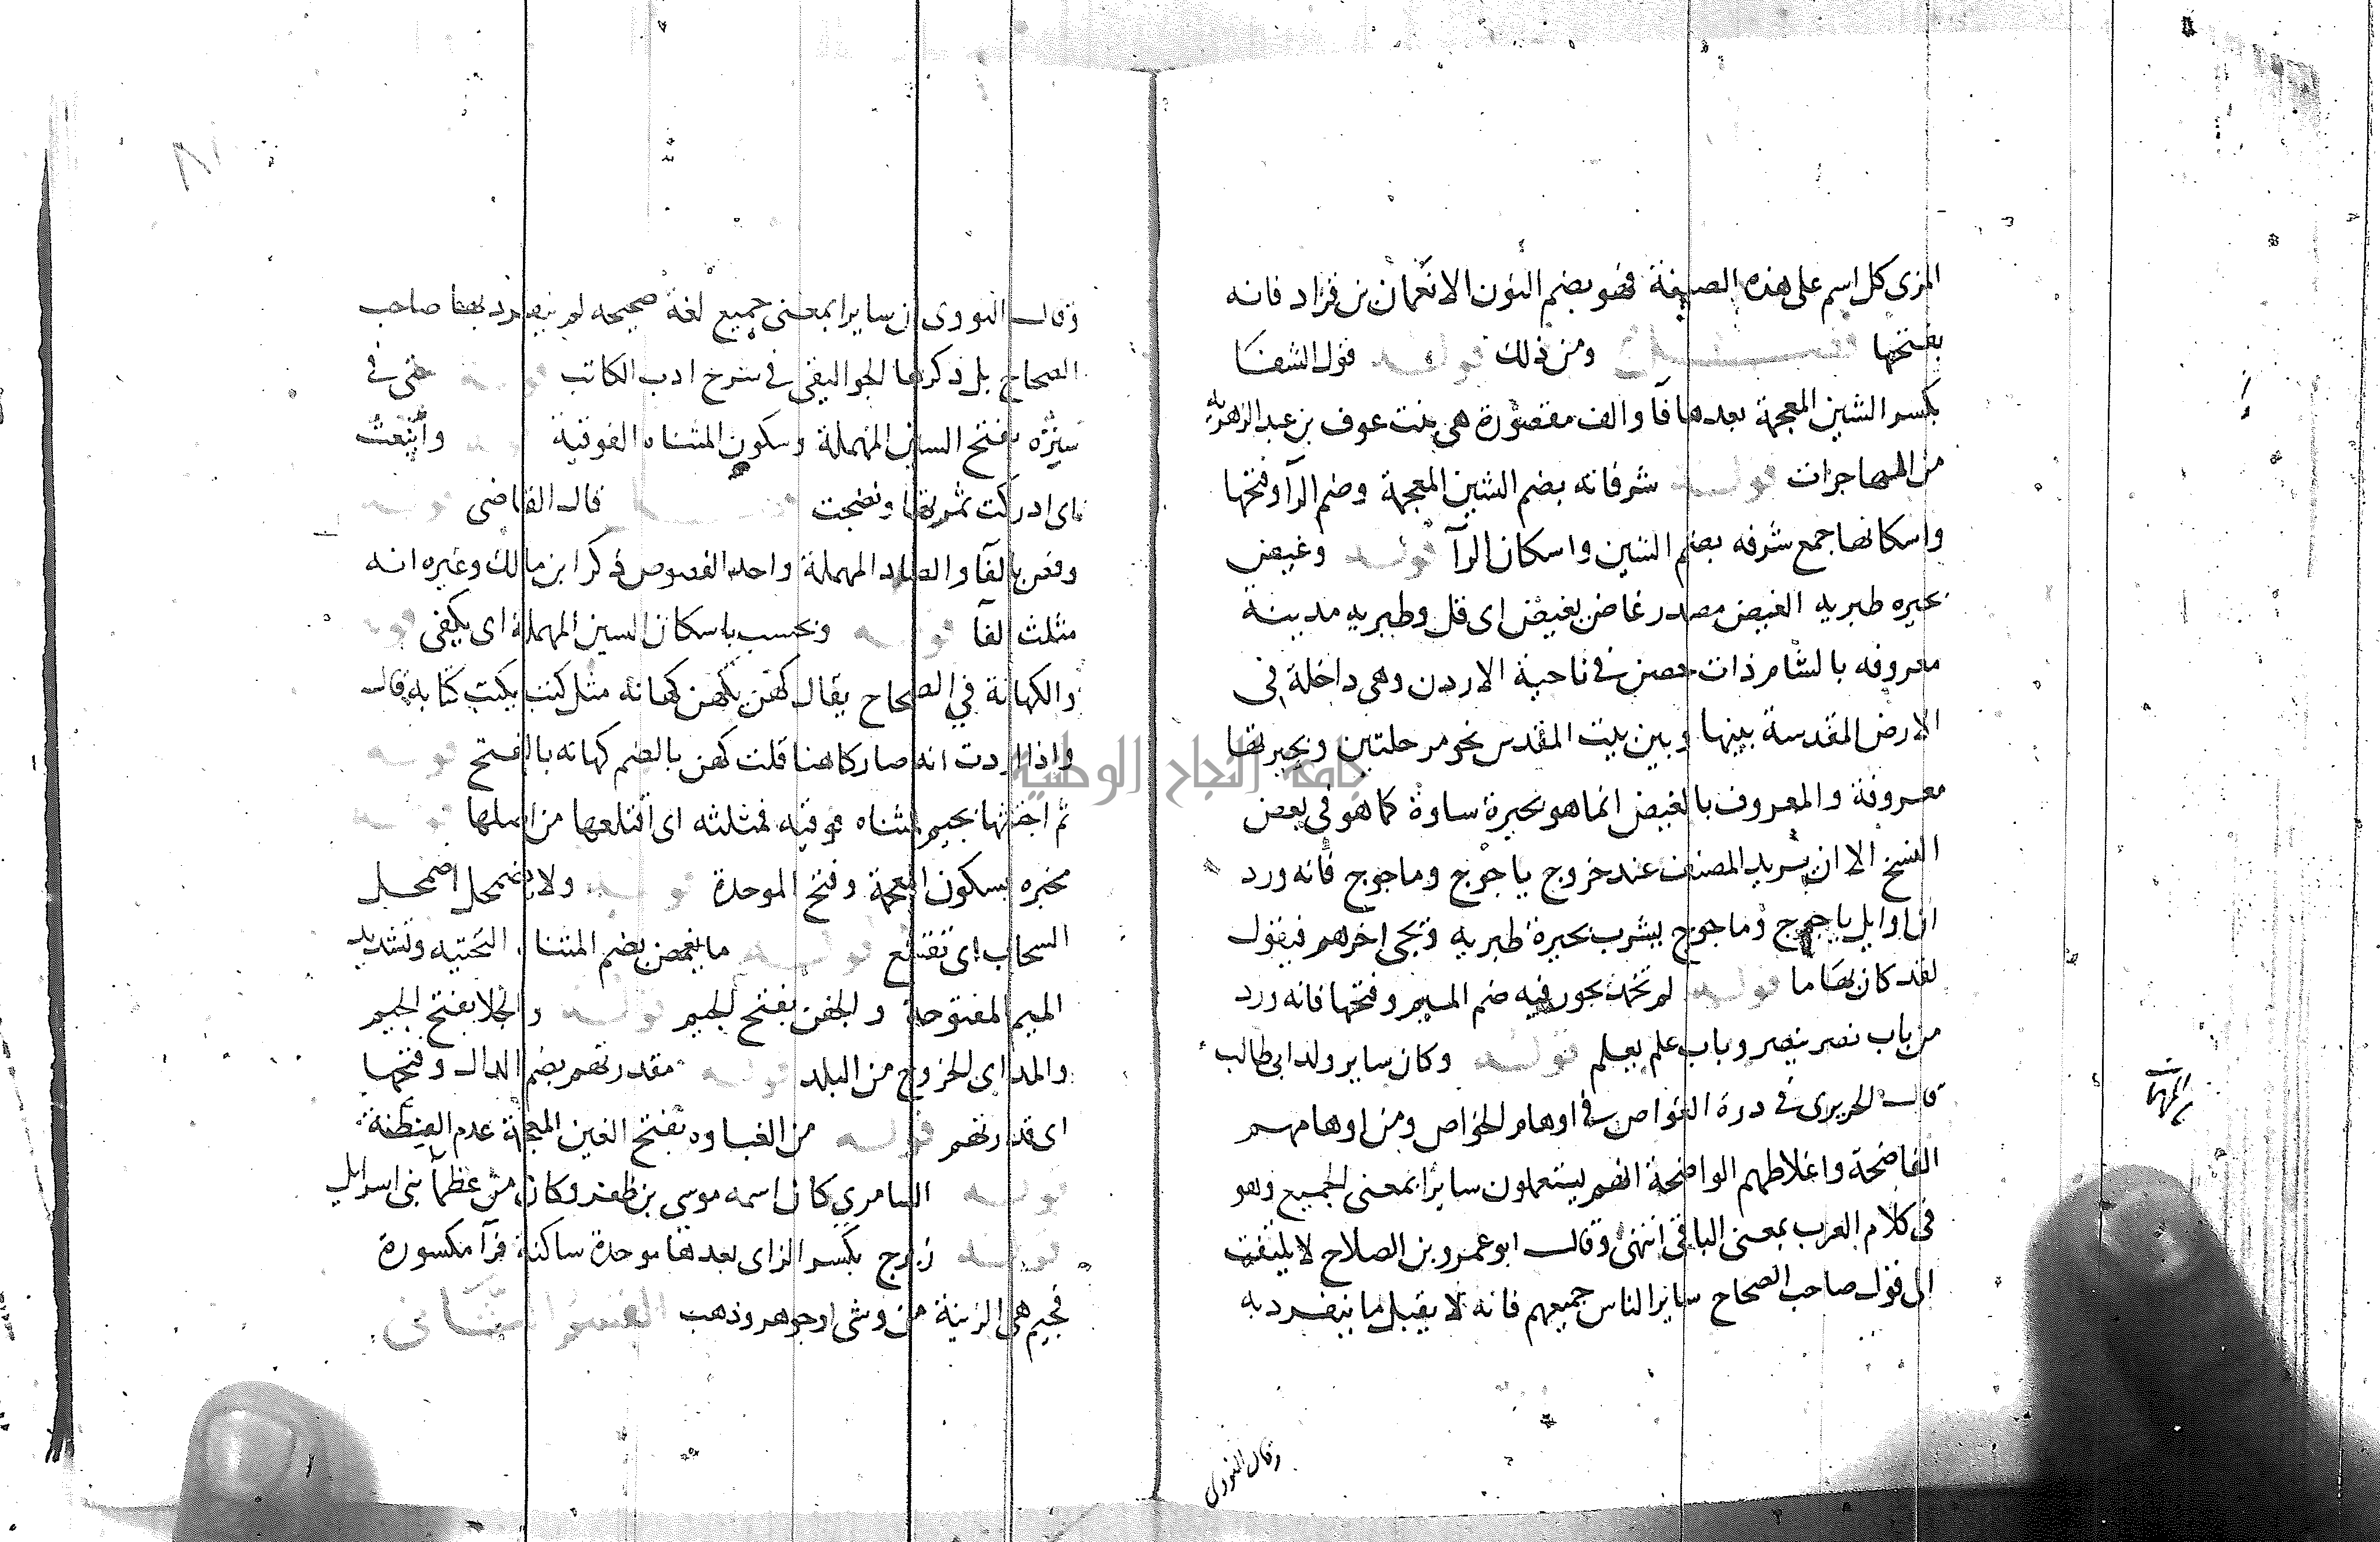 المزى كل اسم على هذه الصيغة فهو بضم النون الا نعمان بن قراد فانه
بفتحها ومن ذلك قوله قول الشفا
بكسر الشين المعجمة بعدها فآ والف مقصورة هى بنت عوف بن عبد الزهرية
من المهاجرات قوله شرفاته بضم الشين المعجمة وضم الرآ وفتحها
واسكانها جمع شرفه بضم الشين واسكان الرآ قوله وغيض
بحيره طبريه الغيض مصدر غاض يغيض اى قل وطبريه مدينة
معروفه بالشام ذات حصن فى ناحية الاردن وهى داخلة فى
الارض المقدسة بينها وبين بيت المقدس نحو مرحلتين وبحيرتها
معروفة والمعروف بالغيض انما هو بحيرة ساوة كما هو فى بعض
النسخ الا ان يريد المصنف عند خروج ياجوج وماجوج فانه ورد
ان اوايل ياجوج وماجوج يشرب بحيرة طبريه ويجى اخرهم فيقول
لقد كان بها ما قوله لم تخمد يجوز فيه ضم الميم وفتحها فانه ورد
من باب نصر ينصر وباب علم يعلم قوله وكان ساير ولد ابى طالب
قال الحريرى فى درة الغواص فى اوهام الخواص ومن اوهامهم
الفاضحة واغلاطهم الواضحة انهم يستعملون سايرا بمعنى الجميع وهو
فى كلام العرب بمعنى الباقى انتهى وقال ابو عمرو بن الصلاح لا يلتفت
الى قول صاحب الصحاح ساير الناس جميعهم فانه لا يقبل ما ينفرد به
وقال النووى
وقال النووى ان سايرا بمعنى جميع لغة صحيحه لم ينفرد بها صاحب
الصحاح بل ذكرها الجواليقى فى شرح ادب الكاتب قوله فى
ستره بفتح السين المهملة وسكون المثناه الفوقية وأينعت
اى ادركت ثمرتها ونضجت قال القاضى قوله
وفص بالفآ والصاد المهملة واحد الفصوص ذكر ابن مالك وغيره انه
مثلث الفآ قوله وبحسب باسكان السين المهملة اى يكفى قوله
والكهانة فى الصحاح يقال كهن يكهن كهانه مثل كتب يكتب كتابه قال
واذا اردت انه صار كاهنا قلت كهن بالضم كهانه بالفتح قوله
ثم اجتثها بجيم فمثناه فوقيه فمثلثه اى اقتلعها من اصلها قوله
مخبره بسكون المعجمة وفتح الموحدة قوله ولا يضمحل اضمحل
السحاب اى تقشع قوله ما يغمض بضم المثناه التحتيه وتشديد
الميم المفتوحة والجفن بفتح الجيم قوله والجلا بفتح الجيم
والمد اى الخروج من البلد قوله مقدرتهم بضم الدال وفتحها
اى قدرتهم قوله من الغباوه بفتح الغين المعجمة عدم الفطنة
قوله السامرى كان اسمه موسى بن ظفر وكان من عظمآ بنى اسرايل
قوله زبرج بكسر الزاى بعدها موحدة ساكنة فرآ مكسورة
فجيم هى الزينة من وشى او جوهر وذهب القسم الثانى
جامعة النجاح الوطنية